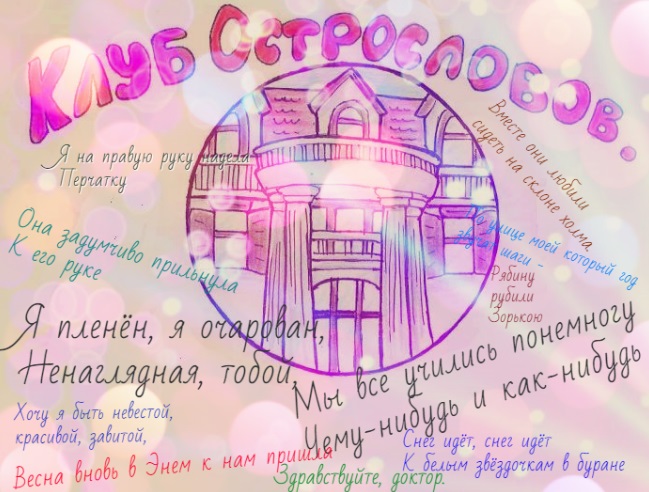 Клуб Острословов.
Я на правую руку надела
Перчатку
Вместе они любили
сидеть на склоне холма.
Она задумчиво прильнула
К его руке
По улице моей который год
звучат шаги -
Рябину
рубили
Зорькою
Я пленён, я очарован,
Ненаглядная, тобой,
Мы все учились понемногу
Чему-нибудь и как-нибудь
Хочу я быть невестой,
красивой, завитой,
Снег идёт, снег идёт
К белым звёздочкам в буране
Весна вновь в Энем к нам пришла
Здравствуйте, доктор.